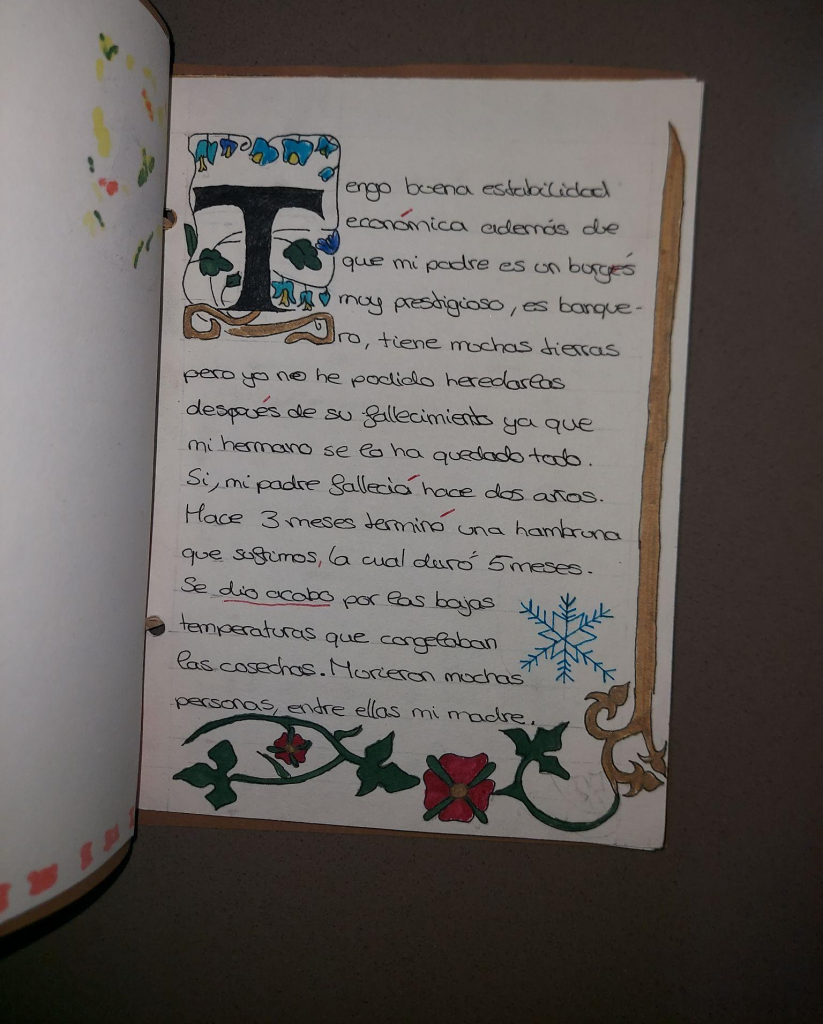 Tengo buena estabilidad
económica además de
que mi padre es un burgés
muy prestigioso, es banque-
ro, tiene muchas tierras
pero yo no he podido heredarlas
después de su fallecimiento ya que
mi hermano se lo ha quedado todo.
Si, mi padre falleció hace dos años.
Hace 3 meses terminó una hambruna
que sufrimos, la cual duró 5 meses.
Se dio acabo por las bajas
temperaturas que congelaban
las cosechas. Murieron muchas
personas, entre ellas mi madre.